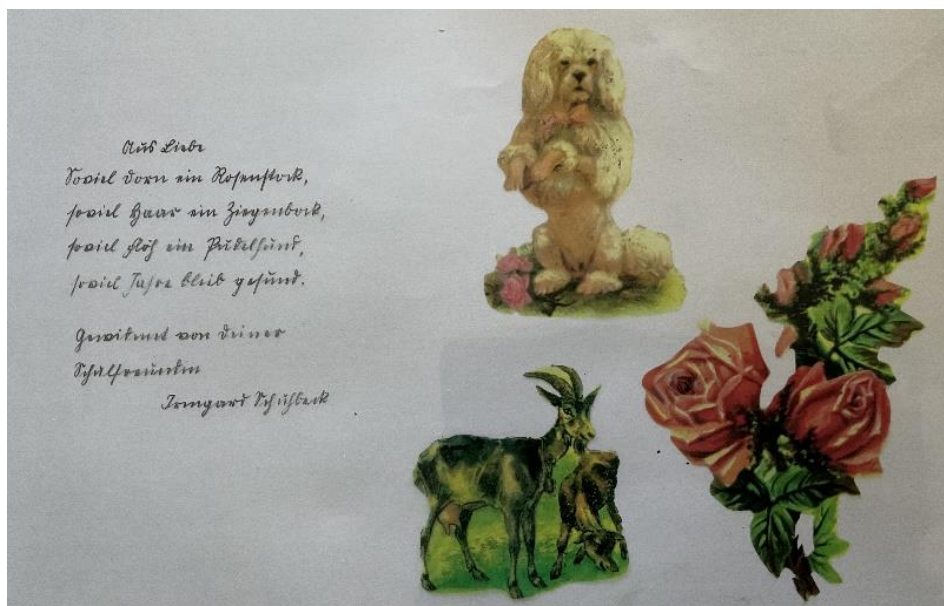 Aus Liebe
Soviel Dorn ein Rosenstock,
soviel Haar ein Ziegenbock,
soviel Flöh ein Pudelhund,
soviel Jahre bleib gesund.
Gewidmet von Deiner
Schulfreundin
Irmgard Schuhbeck